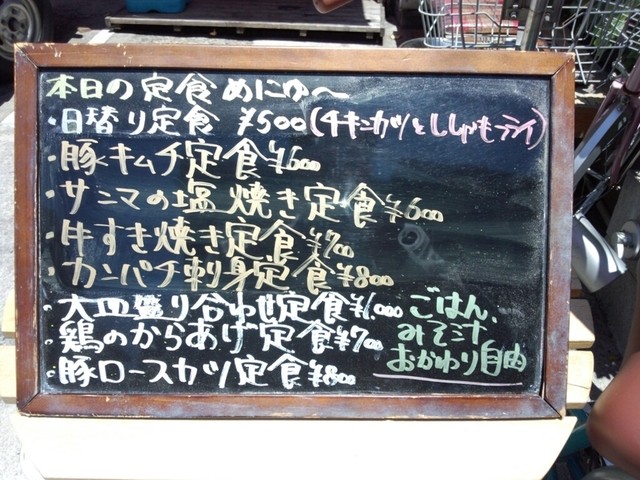 本日の定食めにゅ〜
・日替り定食 ¥500(チキンカツとししゃもフライ)
・豚キムチ定食¥600
・サンマの塩焼き定食¥600
・牛すき焼き定食¥700
・カンパチ刺身定食¥800
・大皿盛り合わせ定食¥1,000
・鶏のからあげ定食¥700
・豚ロースカツ定食¥800
ごはん、
みそ汁
おかわり自由